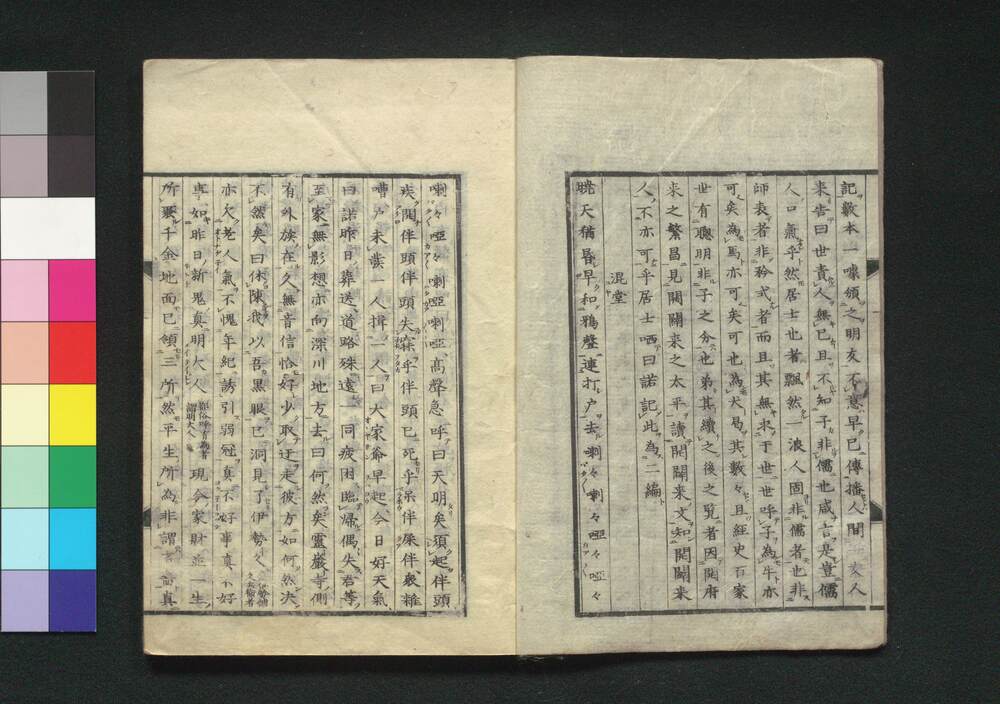 記數本一噱頒之明友不意早已傳播人間 友人
来告曰世責人無已且不知子非儒也咸言是豈儒
人口氣乎然居士也者飄然一浪人固非儒者也非
師表者非矜式者而且其無求于世世呼子為牛亦
可矣為馬亦可矣可也為犬局其數々且經史百家
世有聰明非子之分也弟其續之後之覧者因開府
来之繁昌見開闢来之太平讀開闢来文知開闢来
人不亦可乎居士哂曰諾記此為二編
混堂
曉天猶昏早和鴉聲連打戸去喇々喇々啞々啞々
喇々啞々喇啞喇啞高聲急呼曰天明矣須起伴頭
疾開伴頭伴頭失寐乎伴頭已死乎呆伴屎伴裏雜
嘈戸未發一人揖一人曰大家爺早起今日好天氣
曰諾昨日葬送道路殊遠一同疲困臨歸偶失君等
至家無影想亦向深川地方去曰何然矣靈巖寺側
有外族在久無音信恰好少取迂走彼方如何然决
不然矣曰休陳我以吾黒眼已洞見了伊勢久
亦欠老人氣不愧年紀誘引弱冠真不好事真不好
事如昨日新鬼真明大人現今家財並一生
所要千金地面已領三所然平生所為非謂 當真